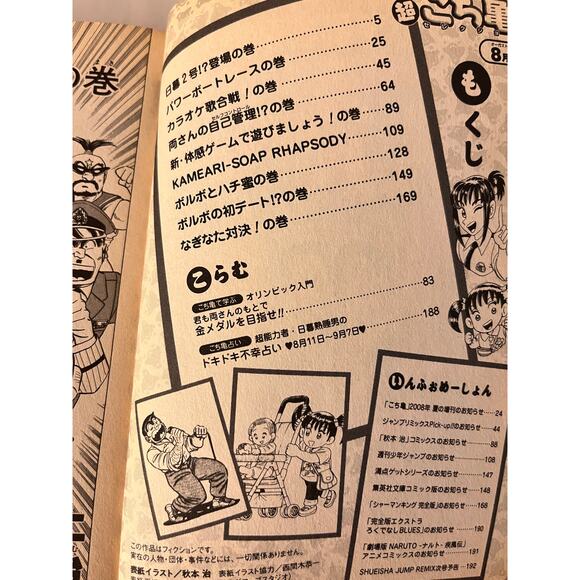 の巻
超こち亀
8月
もくじ
日暮2号!?登場の巻……5
パワーボートレースの巻……25
カラオケ歌合戦!の巻……45
両さんの自己管理!?の巻……64
セルフコントロール
新・体感ゲームで遊びましょう!の巻……89
KAMEARI-SOAP RHAPSODY……109
ボルボとハチ蜜の巻……128
ボルボの初デート!?の巻……149
なぎなた対決!の巻……169
こらむ
こち亀で学ぶ オリンピック入門
君も両さんのもとで
金メダルを目指せ!!……83
こち亀占い 超能力者・日暮熟睡男の
ドキドキ不幸占い♥8月11日〜9月7日♥……188
いんふぉめーしょん
「こち亀」2008年 夏の増刊のお知らせ……24
ジャンプリミックスPick-up!!のお知らせ……44
「秋本 治」コミックスのお知らせ……88
週刊少年ジャンプのお知らせ……108
満点ゲットシリーズのお知らせ……147
集英社文庫コミック版のお知らせ……148
「シャーマンキング 完全版」のお知らせ……168
「完全版エクストラ
ろくでなしBLUES」のお知らせ……190
「劇場版 NARUTO-ナルト- 疾風伝」
アニメコミックスのお知らせ……191
SHUEISHA JUMP REMIX次号予告……192
この作品はフィクションです。
実在の人物・団体・事件などには、一切関係ありません。
表紙イラスト/秋本 治 表紙イラスト協力/西間木恭一